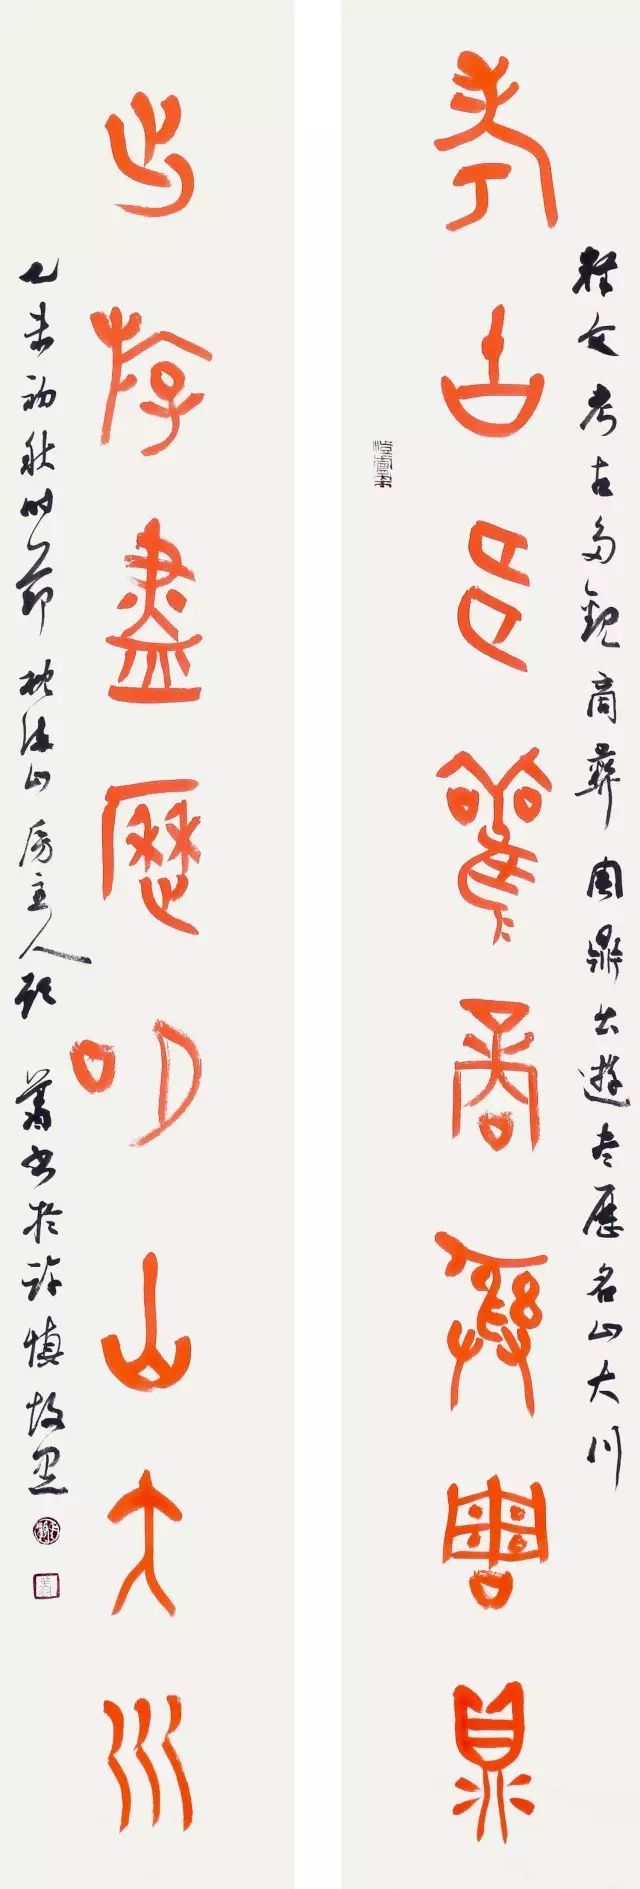 釋文考古多觀商彝周鼎出遊尽歷名山大川
考古多舊商彝周鼎
出游盡歷名山大川
乙未初秋时節山房主人書於許慎故里